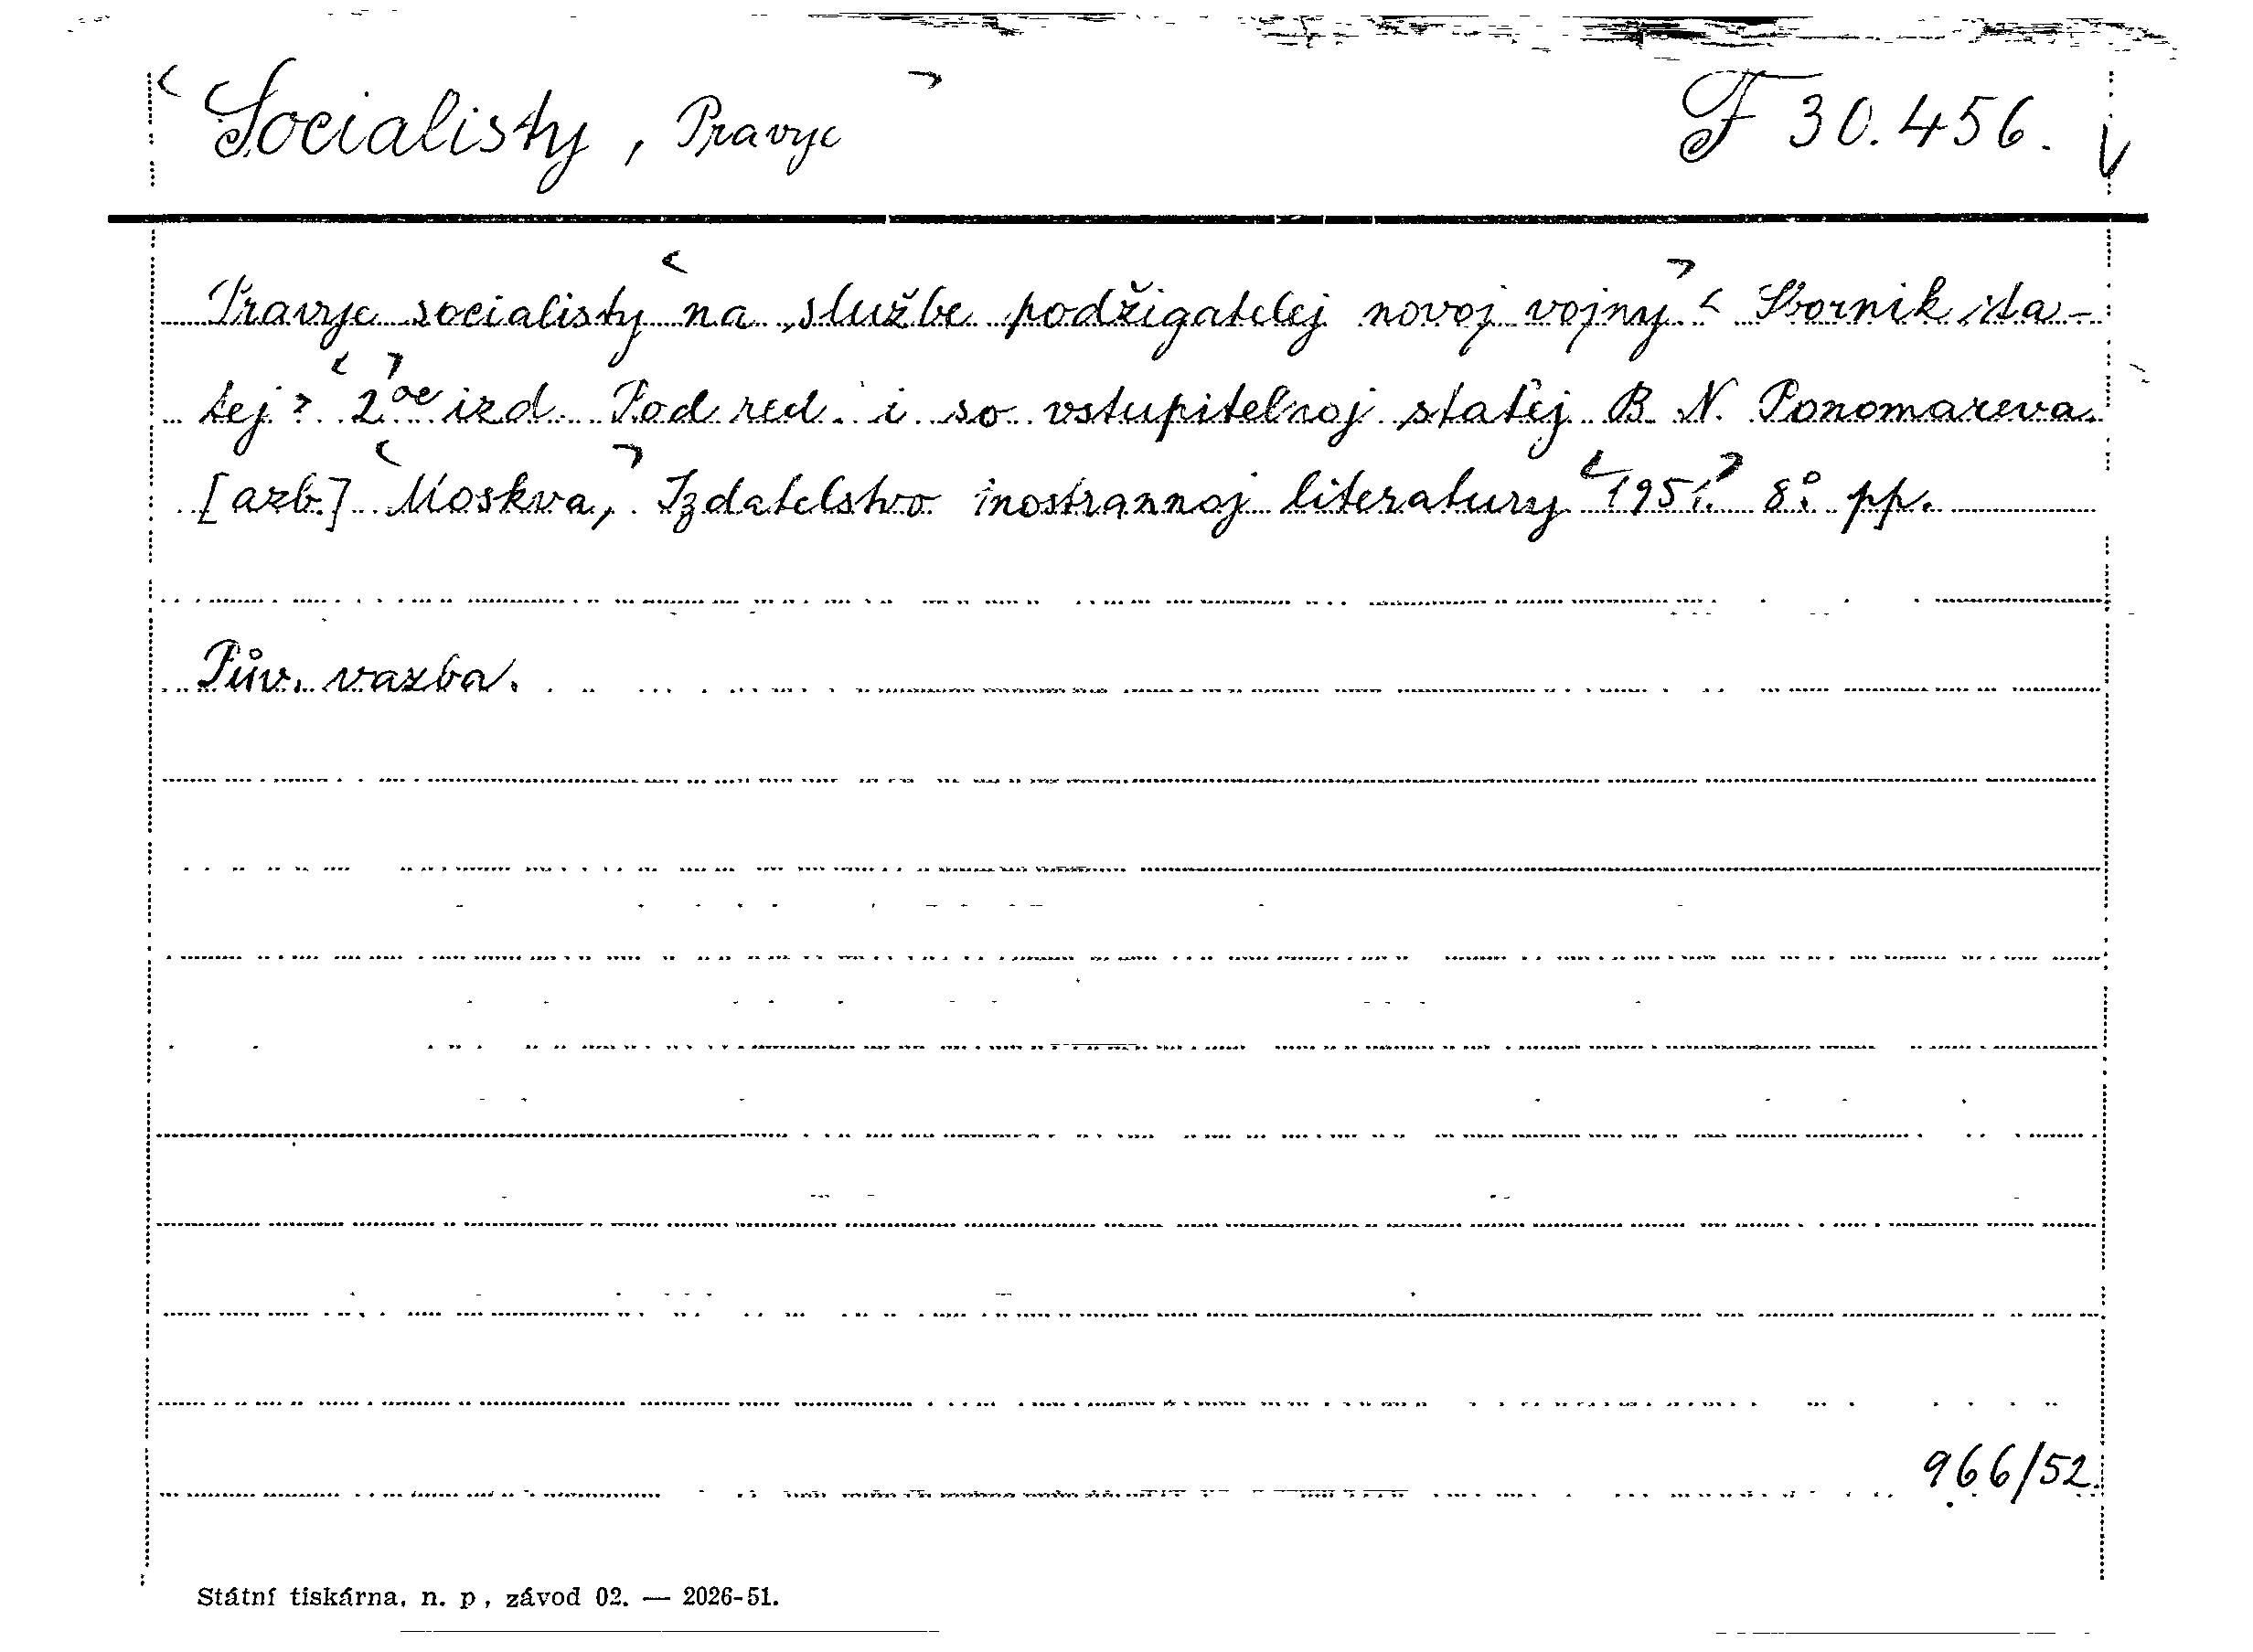 Socialisty, Pravye F 30.456.
Pravye socialisty na službe podžigatelej novoj vojny. Sbornik sta-
tej. 2oe izd. Pod red. i so vstupitelnoj statěj B. N. Ponomareva.
[azb.] Moskva, Izdatelstvo inostrannoj literatury 1951. 8°. pp.
Pův. vazba.
966/52.
Státní tiskárna, n. p., závod 02. — 2026-51.